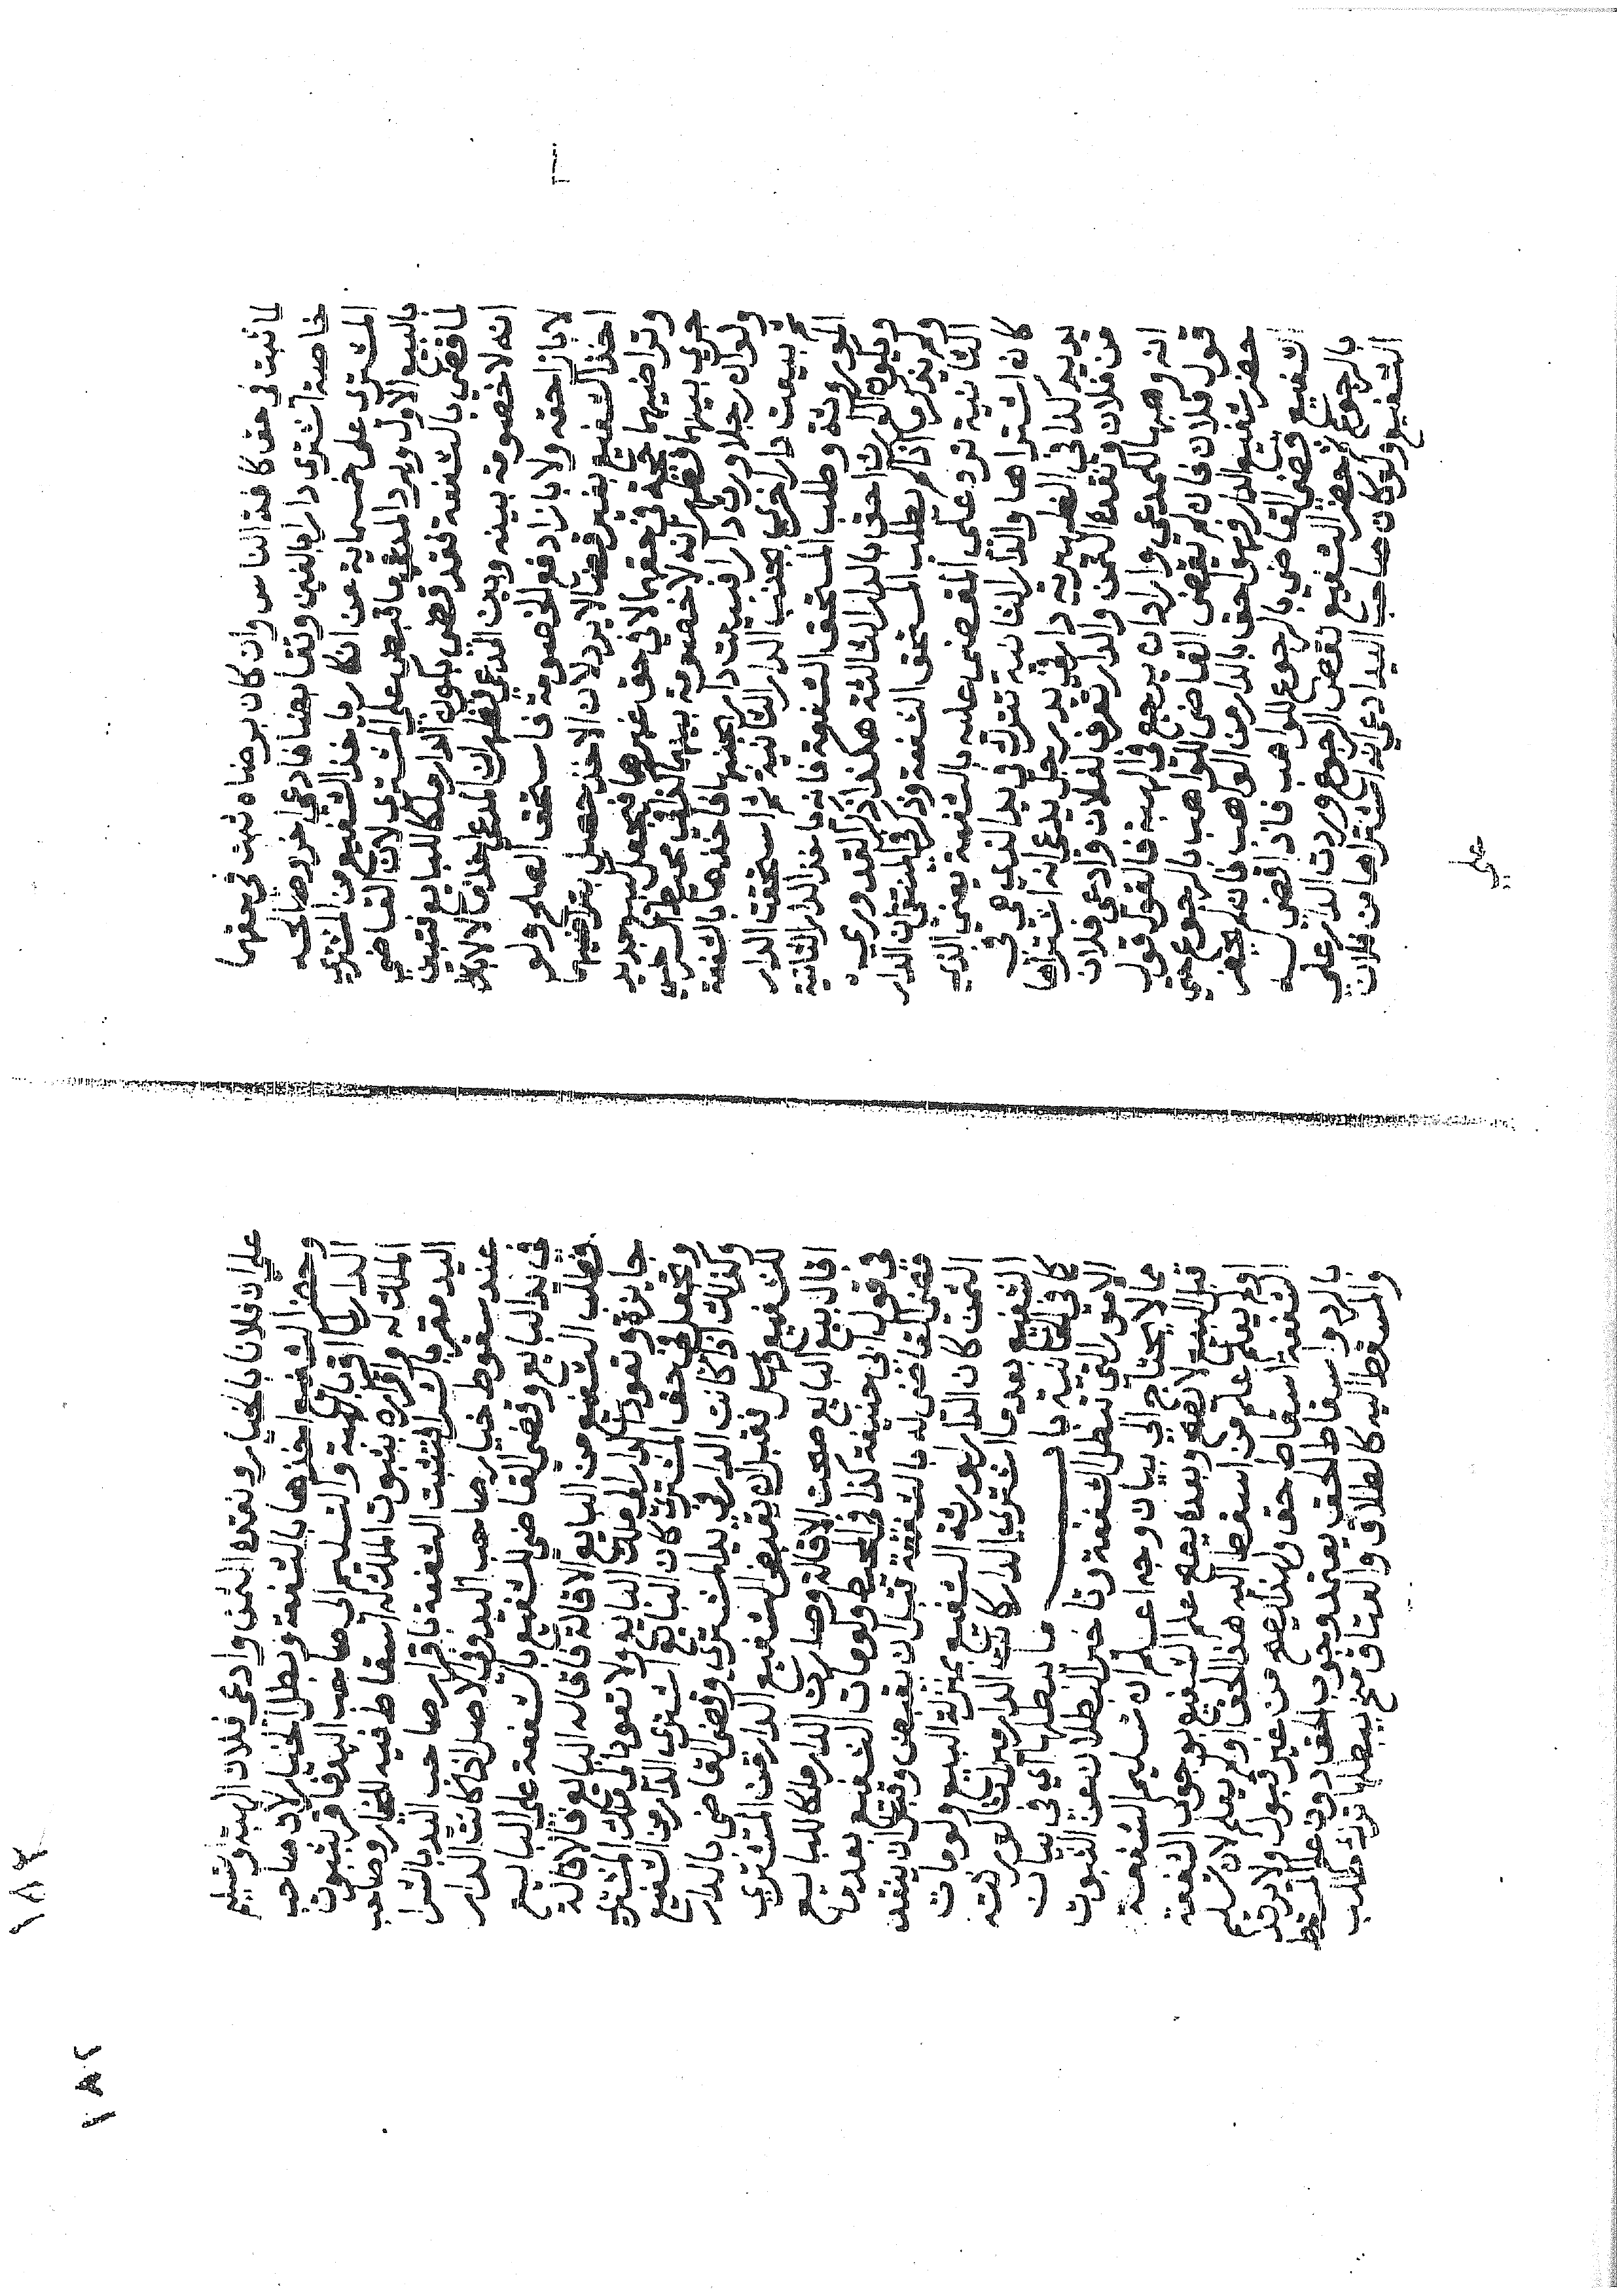 لما ثبت في حق كافة الناس وان كان برضاه ثبت في حقهما
خاصة اشتري دارا بالفين وتقابضا فادعي اخر وصالحه
المشتري علي خمسماية عن انكار ياخذ الشفيع من المشتري
بالبيع الاول ويرد المدعي ما قبض علي المشتري لان القاضي
لما قضي بالشفعة فقد قضي بكون الدار ملكا للبايع فتبين
انه لا خصومة بينه وبين المدعي فظهر ان المدعي اخذ مالا
لا بازا حقه ولا بازا دفع الخصومة فاستحق الصلح ولو
اخذ الشفيع بغير قضا لا يرد لان الاخذ حصل بتراضيهما
وتراضيهما حجة في حقهما لا في حق غيرهما فيجعل كبيع جديد
جري بينهما فظهر انه لا خصومة بينهما كذا في محيط السرخسي
ولو ان رجلا ورث دارا فبيعت دار بجنبها فاخذها بالشفعة
ثم بيعت دار اخري بجنب الدار الثانية ثم استحقت الدار
الموروثة وطلب المستحق الشفعة فانه ياخذ الدار الثانية
ويكون الوارث احق بالدار الثالثة هكذا ذكر القدوري
ولم يذكر ما اذا لم يطلب المستحق الشفعة وذكر في المنتقي ان الدار
الثانية ترد علي المقضي عليه بالشفعة يعني الذي
كان اشتراها والدار الثالثة تترك في يد الذي هي في
يديه كذا في الظهيرية دار في يد رجل يدعي انه اشتراها
من فلان ونقده الثمن والدار تعرف لفلان وادعي فلان
انه وهبها للمدعي واراد ان يرجع في الهبة فالقول قول
قول فلان فان لم يقض القاضي للواهب بالرجوع حتي
حضر شفيع الدار فهو احق بالدار من الواهب فان لم يحضر
الشفيع قضي القاضي بالرجوع للواهب فاذا قضي له
بالرجوع ثم حضر الشفيع نقض الرجوع وردت الدار علي
الشفيع ولو كان صاحب اليد ادعي انه اشتراها من فلان
علي
علي ان فلانا بالخيار ونقده الثمن وادعي فلان الهبة والتسليم
وحضر الشفيع اخذها بالشفعة وبطل الخيار لان صاحب
الدار لما اقر بالهبة والتسليم الي صاحب اليد فاقر بثبوت
الملك له واقراره بثبوت الملك له اسقاط فيه للخيار وصاحب
اليد مقر بالشرا فتثبت الشفعة باقرار صاحب اليد بالشرا
عند سقوط خيار صاحب اليد وفي الاصل اذا كانت الدار
في يد البايع وقضي القاضي للشفيع بالشفعة علي البايع
فطلب الشفيع من البايع الاقالة فاقاله البايع فالاقالة
جايزة وتعود الدار الي ملك البايع ولا تعود الي ملك المشتري
ويجعل في حق المشتري كان البايع اشتري الدار من الشفيع
وكذلك اذا كانت الدار في يد المشتري وقضي القاضي بالدار
للشفيع فقبل ان يقبض الشفيع الدار من المشتري
اقال بيع البايع صحت الاقالة وصارت الدار ملكا للبايع
في قول ابي حنيفة كذا في المحيط ولو مات الشفيع بعد ما
قضي القاضي له بالشفعة قبل ان يقبض وقبل ان ينقد
الثمن كان الدار لورثة الشفيع بمنزلة البيع ولو مات
الشفيع بعد ما اشتري الدار كانت الدار ميراثا لورثته
كذا في التاتارخانية باب ما يبطلها اي في بيان
الامور التي تبطل الشفعة وتاخير البطلان عن الثبوت
مما لا يحتاج الي بيان وجه اعلم ان تسليم الشفعة
قبل البيع لا يصح وبعده يصح علم الشفيع بوجوب الشفعة
او لم يعلم علم من اسقط اليه هذا الحق او لم يعلم لان تسليم
الشفعة اسقاط حق ولهذا يصح من غير قبول ولا يرتد
بالرد واسقاط الحق يعتمد وجوب الحق دون علم المسقط
والمسقط اليه كالطلاق والعتاق يبطلها ترك طلب
١٨٢
١٨٢